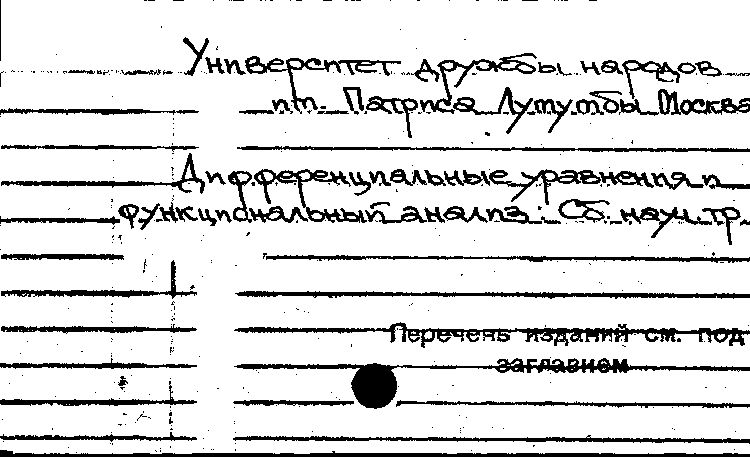 Университет дружбы народов
им. Патриса Лумумбы Москва
Дифференциальные уравнения и
функциональный анализ: Сб. науч. тр.
Перечень изданий см. под
заглавием